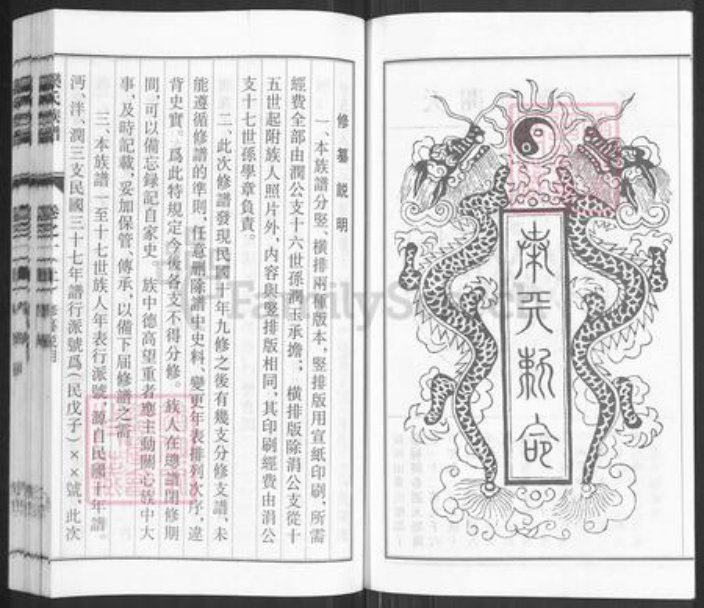 奉天勅命
修纂説明
一、本族譜分竪、橫排兩種版本,竪排版用宣紙印刷,所需
經費全部由潤公支十六世孫潤玉承擔; 橫排版除涓公支從十
五世起附族人照片外,内容與竪排版相同,其印刷經費由涓公
支十七世孫學章負責。
二、此次修譜發現民國十年九修之後有幾支分修支譜、未
能遵循修譜的準則,任意删除譜中史料、變更年表排列次序,違
背史實。爲此特規定今後各支不得分修。族人在總譜閉修期
間,可以備忘録記自家史。 族中德高望重者應主動關心族中大
事,及時記載,妥加保管、傳承,以備下届修譜之需。
三、本族譜一至十七世族人年表行派號,源自民國十年譜。
沔、泮、潤三支民國三十七年譜行派號爲(民戊子)××號、此次
氏族譜
修纂説明
FamilySearch